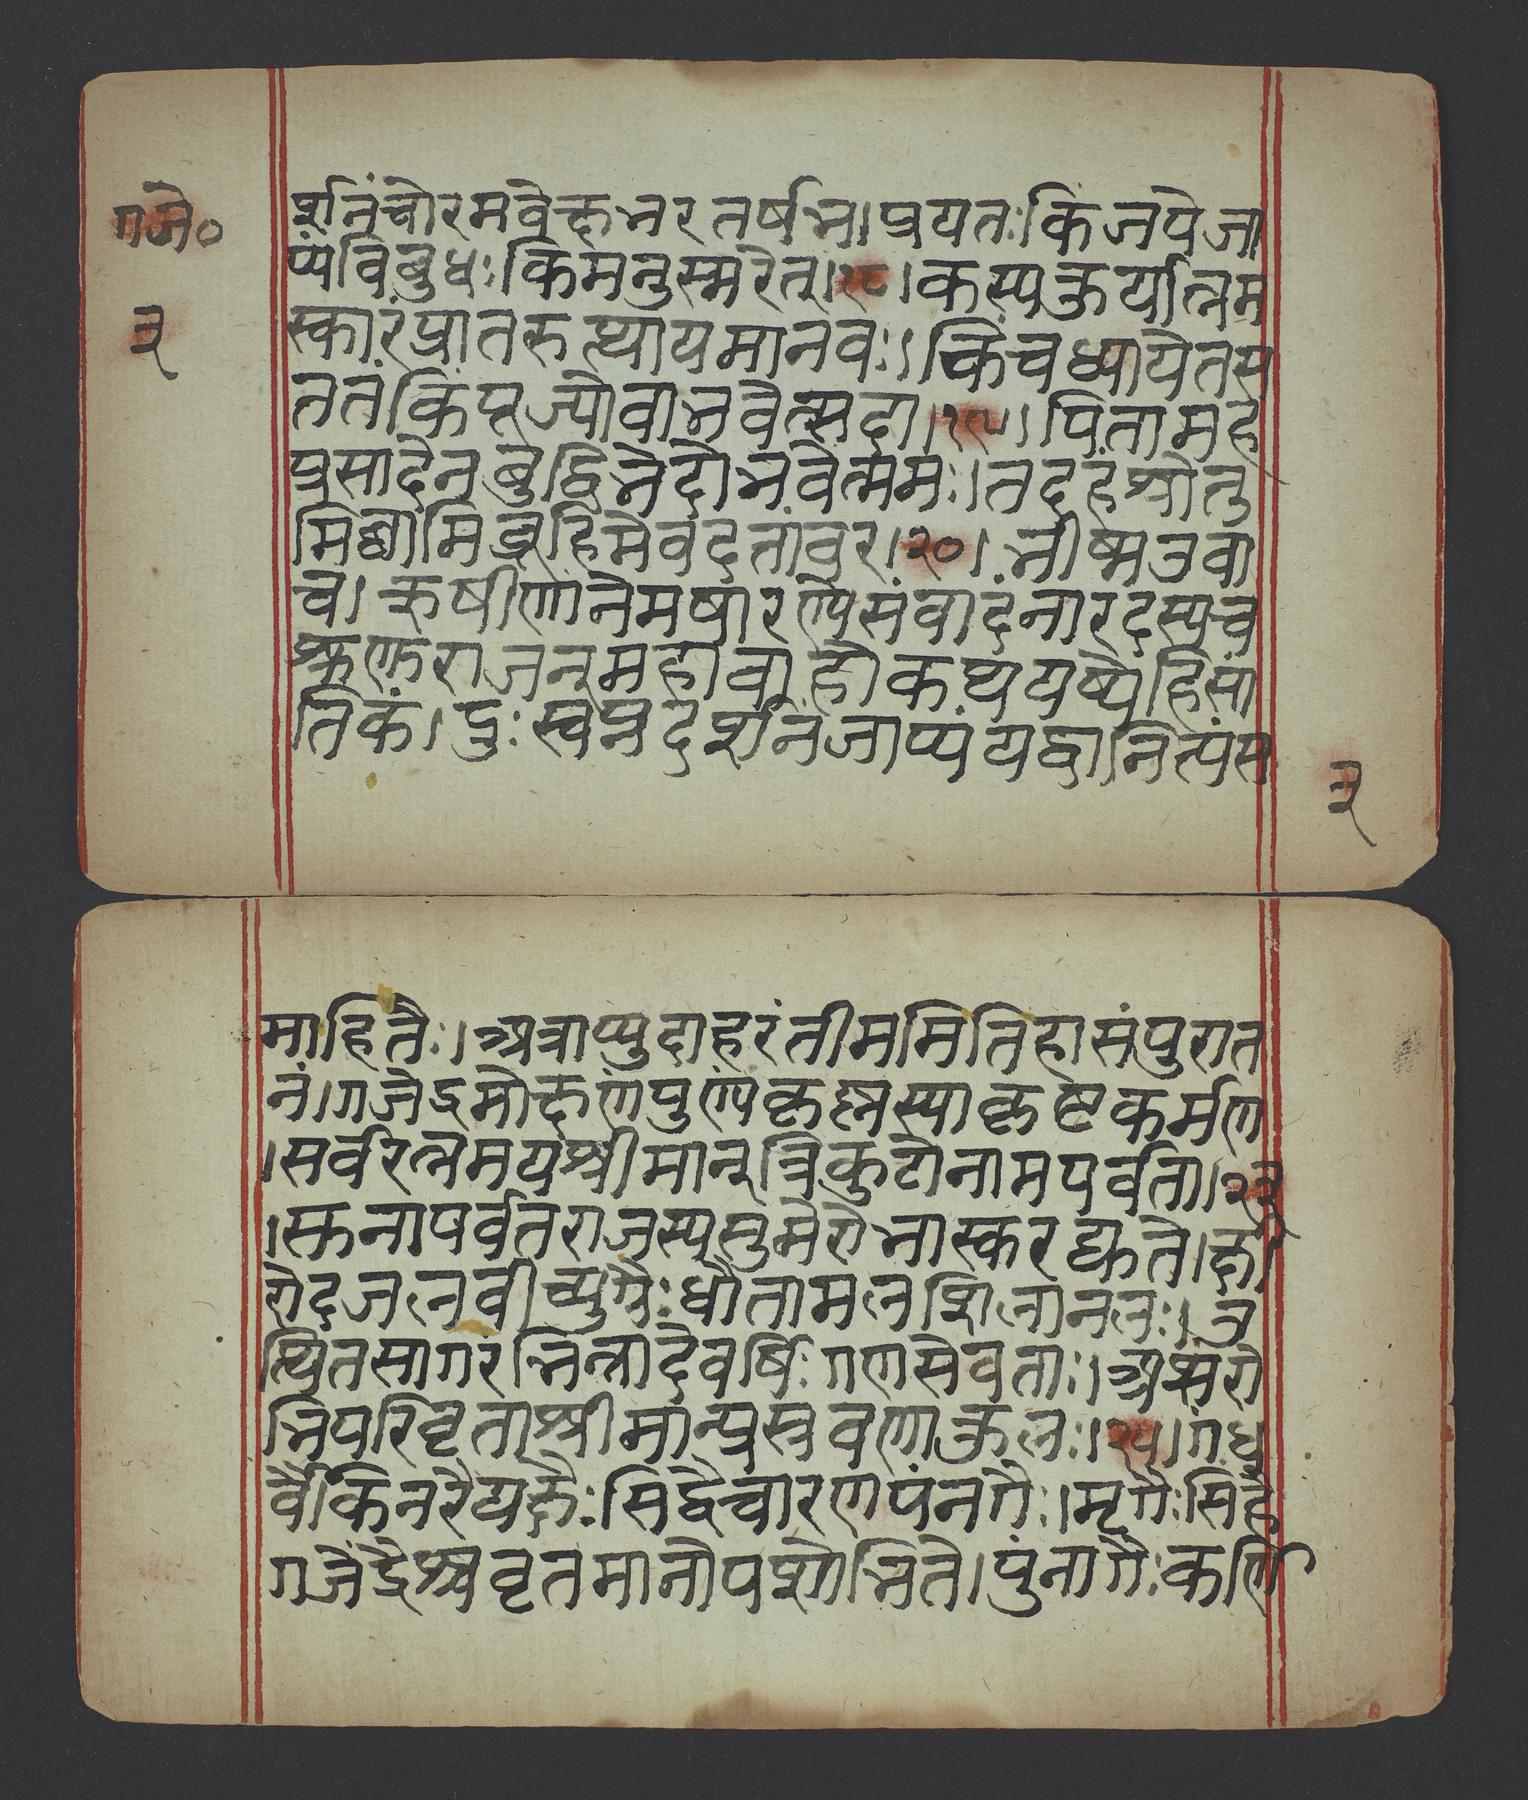 गजे०
३
र्शनंचोरमवेक्षभरतर्षभ।प्रयतःकिंजपेजा
प्यंविबुधःकिमनुस्मरेत्।१८।कस्यकुर्यान्नम
स्कारंप्रातरुत्थायमानवः।किंचध्यायेतस
ततंकिंपूज्योवाभवेत्सदा।१९।पितामह
प्रसादेनबुद्धिभेदोभवेत्ममः।तदहंश्रोतु
मिछामिब्रूहिमेवदतांवर।२०।भीष्मउवा
च।ऋषीणांनेमषारण्येसंवादंनारदस्यच
श्रुणुराजन्महाबाहोकथययष्येहिसां
तिकं।दुःस्वप्नदर्शनंजाप्यंयद्वानित्यंस
३
माहितैः।अत्राप्युदाहरंतीममितिहासंपुरात
नं।गजेंद्रमोक्षणंपुण्यंकृष्णस्याकृष्टकर्मण
।सर्वरत्नमयश्रीमान्त्रिकुटोनामपर्वता।२३
।स्कनापर्वतराजस्यसुमेरोभास्करद्युते।क्षी
रोदजलवीच्युग्रैःधौतामलशिलानलः।उ
त्थितसागरंभित्वादेवर्षिःगणसेवताः।अप्सरो
भिपरिवृताश्रीमान्प्रस्रवणाकुलः।२५।गंध
र्वैकिंनरैयक्षैःसिद्धैचारणपंनगैः।मृगैःसिंहै
गजेंद्रैश्चवृतमानोपशोभिते।पुंनागैःकर्णि